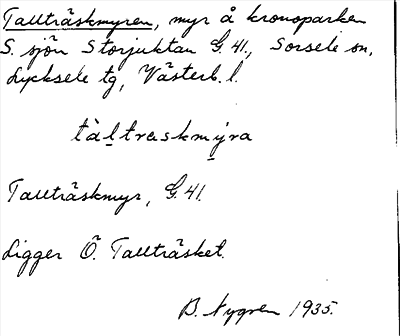 Tallträskmyren, myr å kronoparken
S. sjön Storjuktan G. 41., Sorsele sn,
Lycksele tg, Västerb. l.
tàltraskmýra
Tallträskmyr, G. 41.
Ligger Ö. Tallträsket.
B. Nygren 1935.